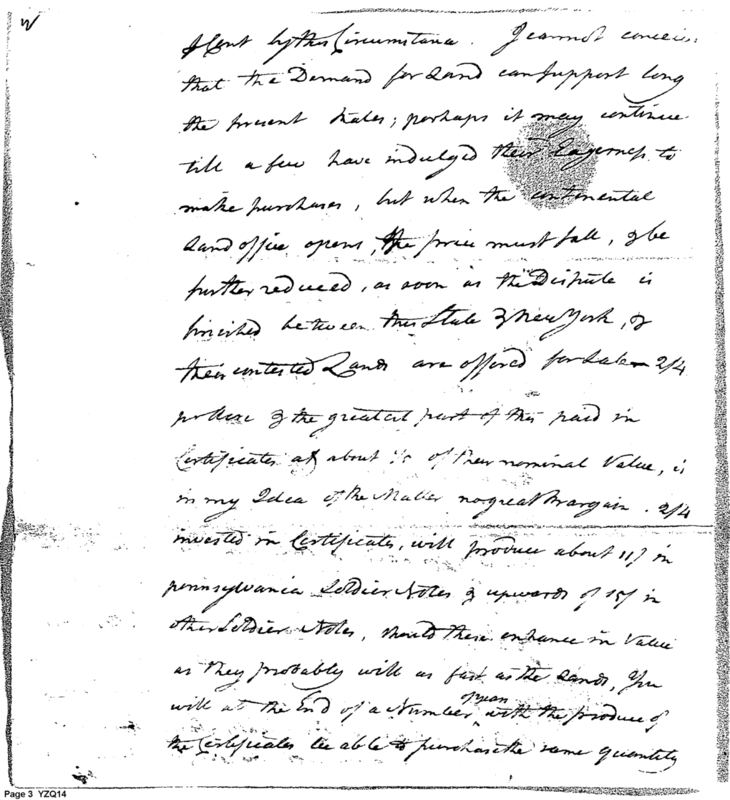 by this Circumstance. I cannot conceive
that the Demand for Land can support long
the present Rates; perhaps it may continue
till a few have indulged their Eagerness to
make purchases, but when the continental
Land office opens, the price must fall, & be
further reduced, as soon as the Dispute is
finished between this State & New York, &
their contested Lands are offered for Sale 2/4
& the greatest part of this paid in
Certificates at about of their nominal Value, is
in my Idea of the Matter no great Bargain. 2/4
invested in Certificates, will produce about 11/ in
pennsylvania Soldier Notes & upwards of 15/ in
other Soldier Notes, should these enhance in Value
as they probably will as fast as the Lands, You
of years
will at the End of a Number, with the produce of
the Certificates be able to purchase the same quantity
Page 3 YZQ14